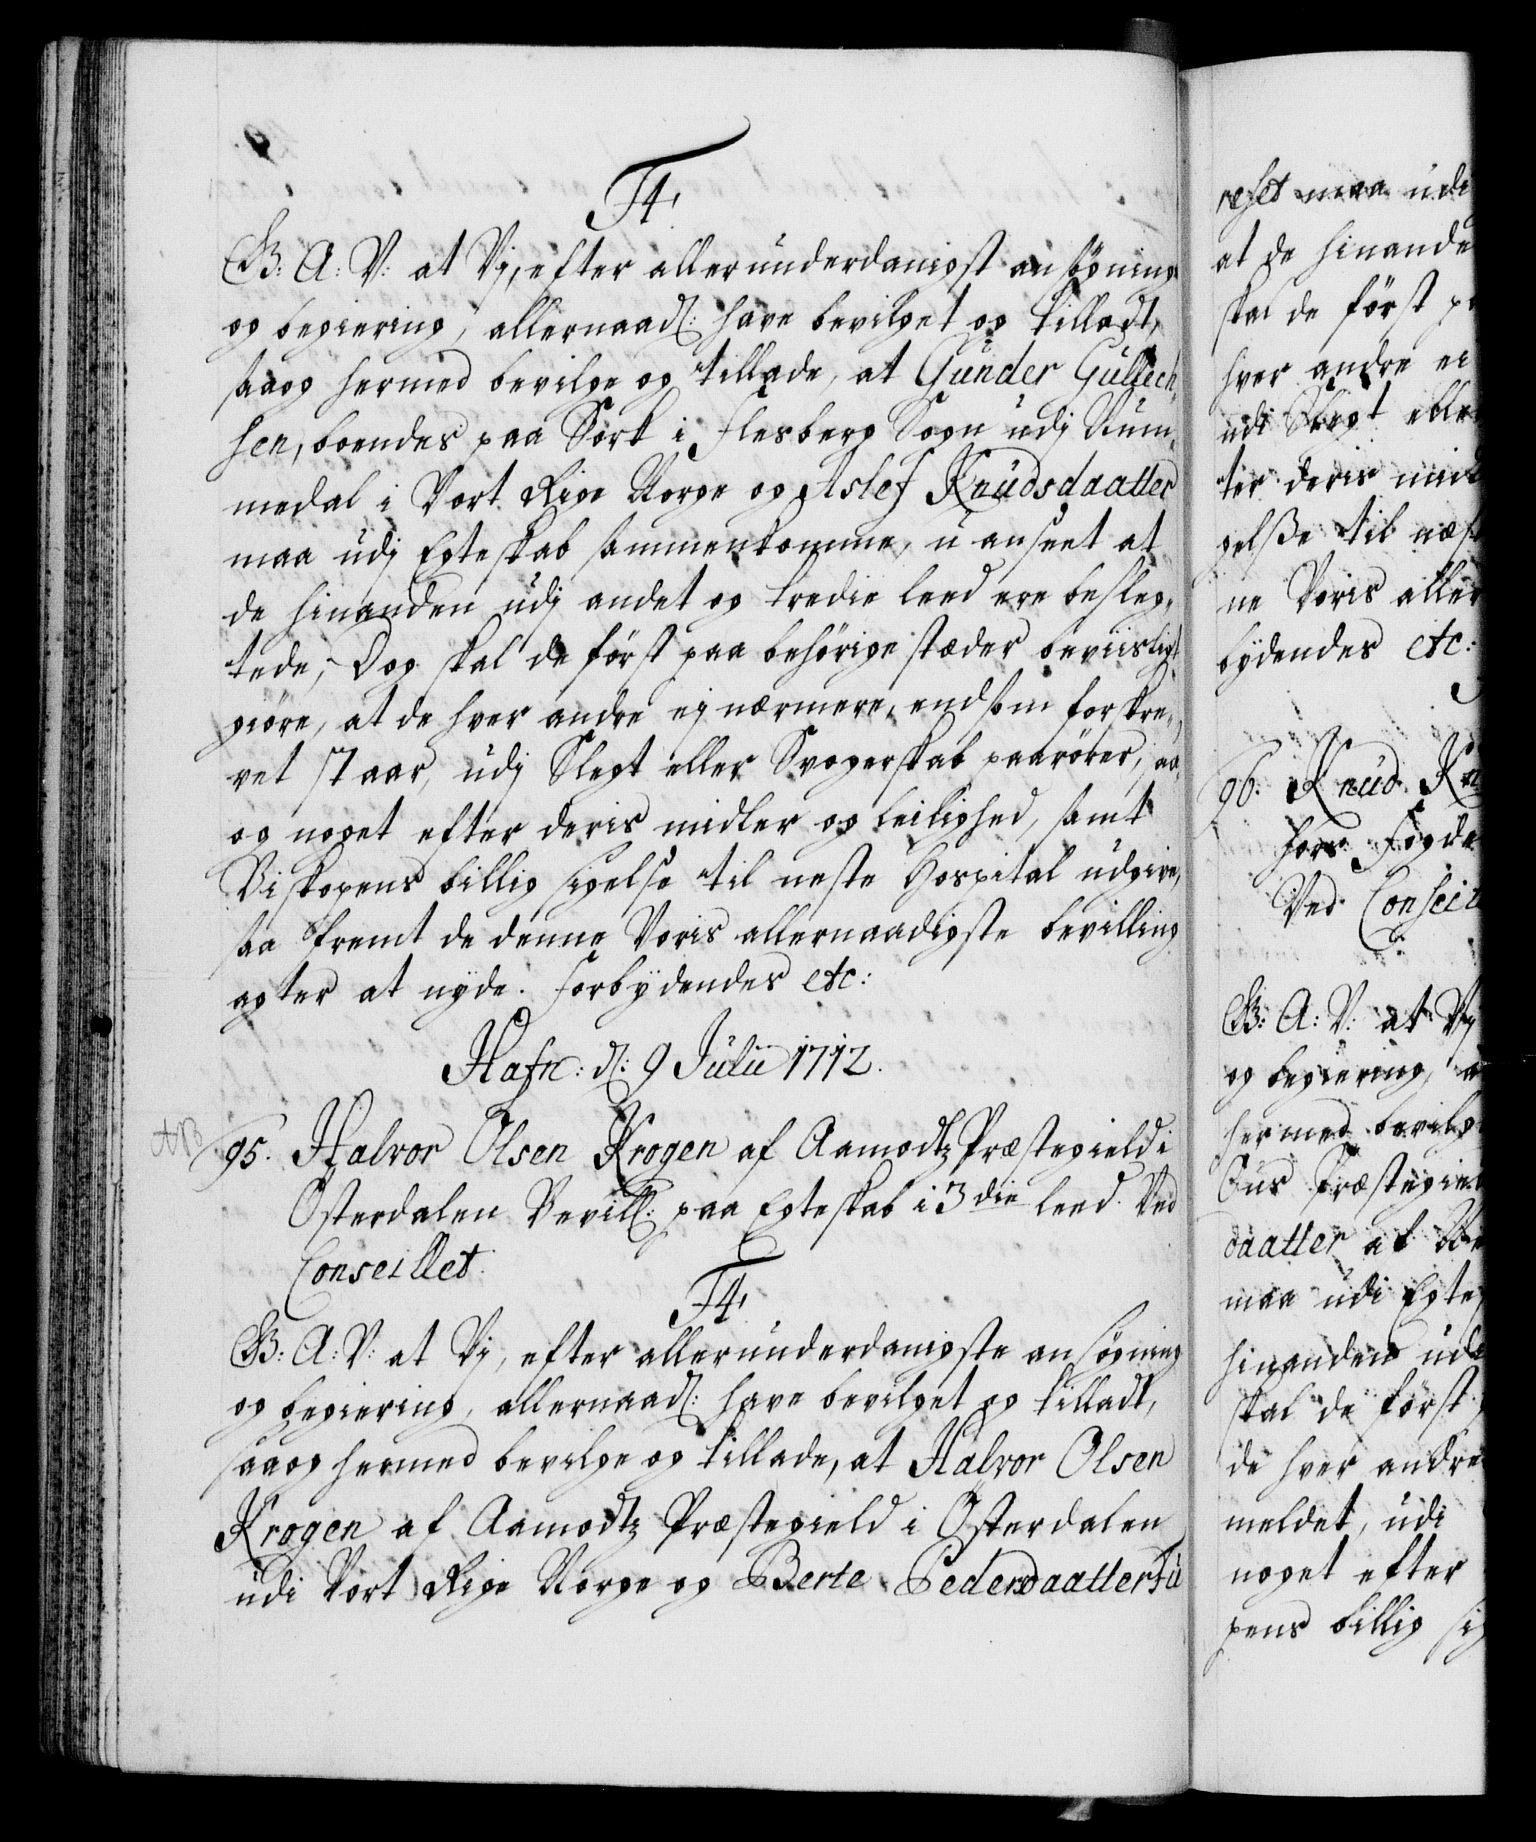 F4.
G: A: V: at Vj, efter allerunderdanigst ansøgning
og begiering, allernaad: have bevilget og tilladt,
saa og hermed bevilge og tillade, at Gunder Gullich,,
sen, boendes paa Sørt i Flesberg Sogn udj Num,,
medal i Vort Rige Norge og Aslef Knudsdaatter
maa udj Egteskab sammenkomme, uanseet at
de hinanden udj andet og tredie leed ere besleg,,
tede, Dog skal de først paa behørige stæder beviislig
giøre, at de hver andre ej nærmere, end som forskre,,
vet staar, udj Slegt eller Svogerskab paarører, saa
og noget efter deris midler og leilighed, samt
Biskopens billig sigelse til neste Hospital udgive,
saa fremt de denne Voris allernaadigste bevilling
agter at nyde. Forbydendes etc:
Hafn: d: 9 Julii 1712.
95. Halvor Olsen Krogen af Aamodtz Præstegield i
Østerdalen Bevill: paa Egteskab i 3die leed. Ved
Conseillet.
F4.
G: A: V: at Vj, efter allerunderdanigste ansøgning
og begiering, allernaad: have bevilget og tilladt,
saa og hermed bevilge og tillade, at Halvor Olsen
Krogen af Aamodtz Præstegield i Østerdalen
udi Vort Rige Norge og Berte Pedersdaatter
maa udi
at de hinande
skal de først
hver andre ei
udi Slegt elle
ter deris mid
gelße til næst
ne Voris aller
bydendes etc:
96. Knud
Fogde
Ved Conseil
G: A: V: at Vj
og begiering, a
hermed bevilg
Præstegiel
daatter af
maa udi Egte
hinanden ud
skal de først
de hver andre
meldet, udi
noget efter
pens billig si